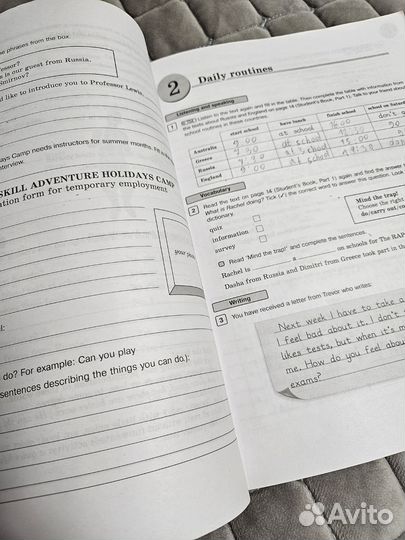 he phrases from the box.
fessor?
is our guest from Russia.
Smirnov?
d like to introduce you to Professor Lewis.
ays Camp needs instructors for summer months. Fill
nterview.
SKILL ADVENTURE HOLIDAYS CAMP
ation form for temporary employment
your
l:
do? For example: Can you play
sentences describing the things you can do.):
2 Daily routines
Listening and speaking
1 Listen to the text again and fill in the table. Then complete the table with information from
the texts about Russia and England on page 14 (Student's Book, Part 1). Talk to your friend about
school routines in these countries.
start school have lunch finish school school on Satur
Australia 9.00 at school 16.00 don't
Greece
Russia
England
Vocabulary
2 Read the text on page 14 (Student's Book, Part 1) again and find the answer
What is Rachel doing? Tick (✓) the correct word to answer this question. Look
dictionary.
quiz
information
survey
Mind the trap!
Choose the right
do/carry out/co
Read 'Mind the trap!' and complete the sentences.
Rachel is a on schools for The RAP
Dasha from Russia and Dimitri from Greece took part in the
Writing
3 You have received a letter from Trevor who writes:
Next week I have to take a
I feel bad about it. I don't
likes tests, but when it's m
me. How do you feel abou
exams?
Avito